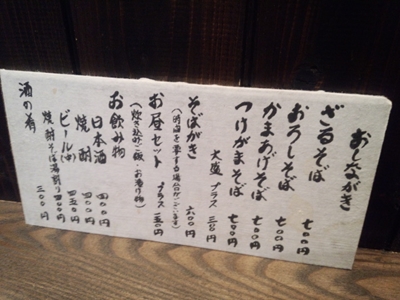 おしながき
ざるそば 七〇〇円
おろしそば 七〇〇円
かまあげそば 七〇〇円
つけがまそば 七〇〇円
大盛 プラス 三〇〇円
そばがき 六〇〇円
(時間を要する場合がございます)
お昼セット プラス 二五〇円
(炊き込みご飯・お漬け物)
お飲み物
日本酒 四〇〇円
焼酎 四〇〇円
ビール(中) 四五〇円
焼酎そば湯割り 四〇〇円
酒の肴 三〇〇円